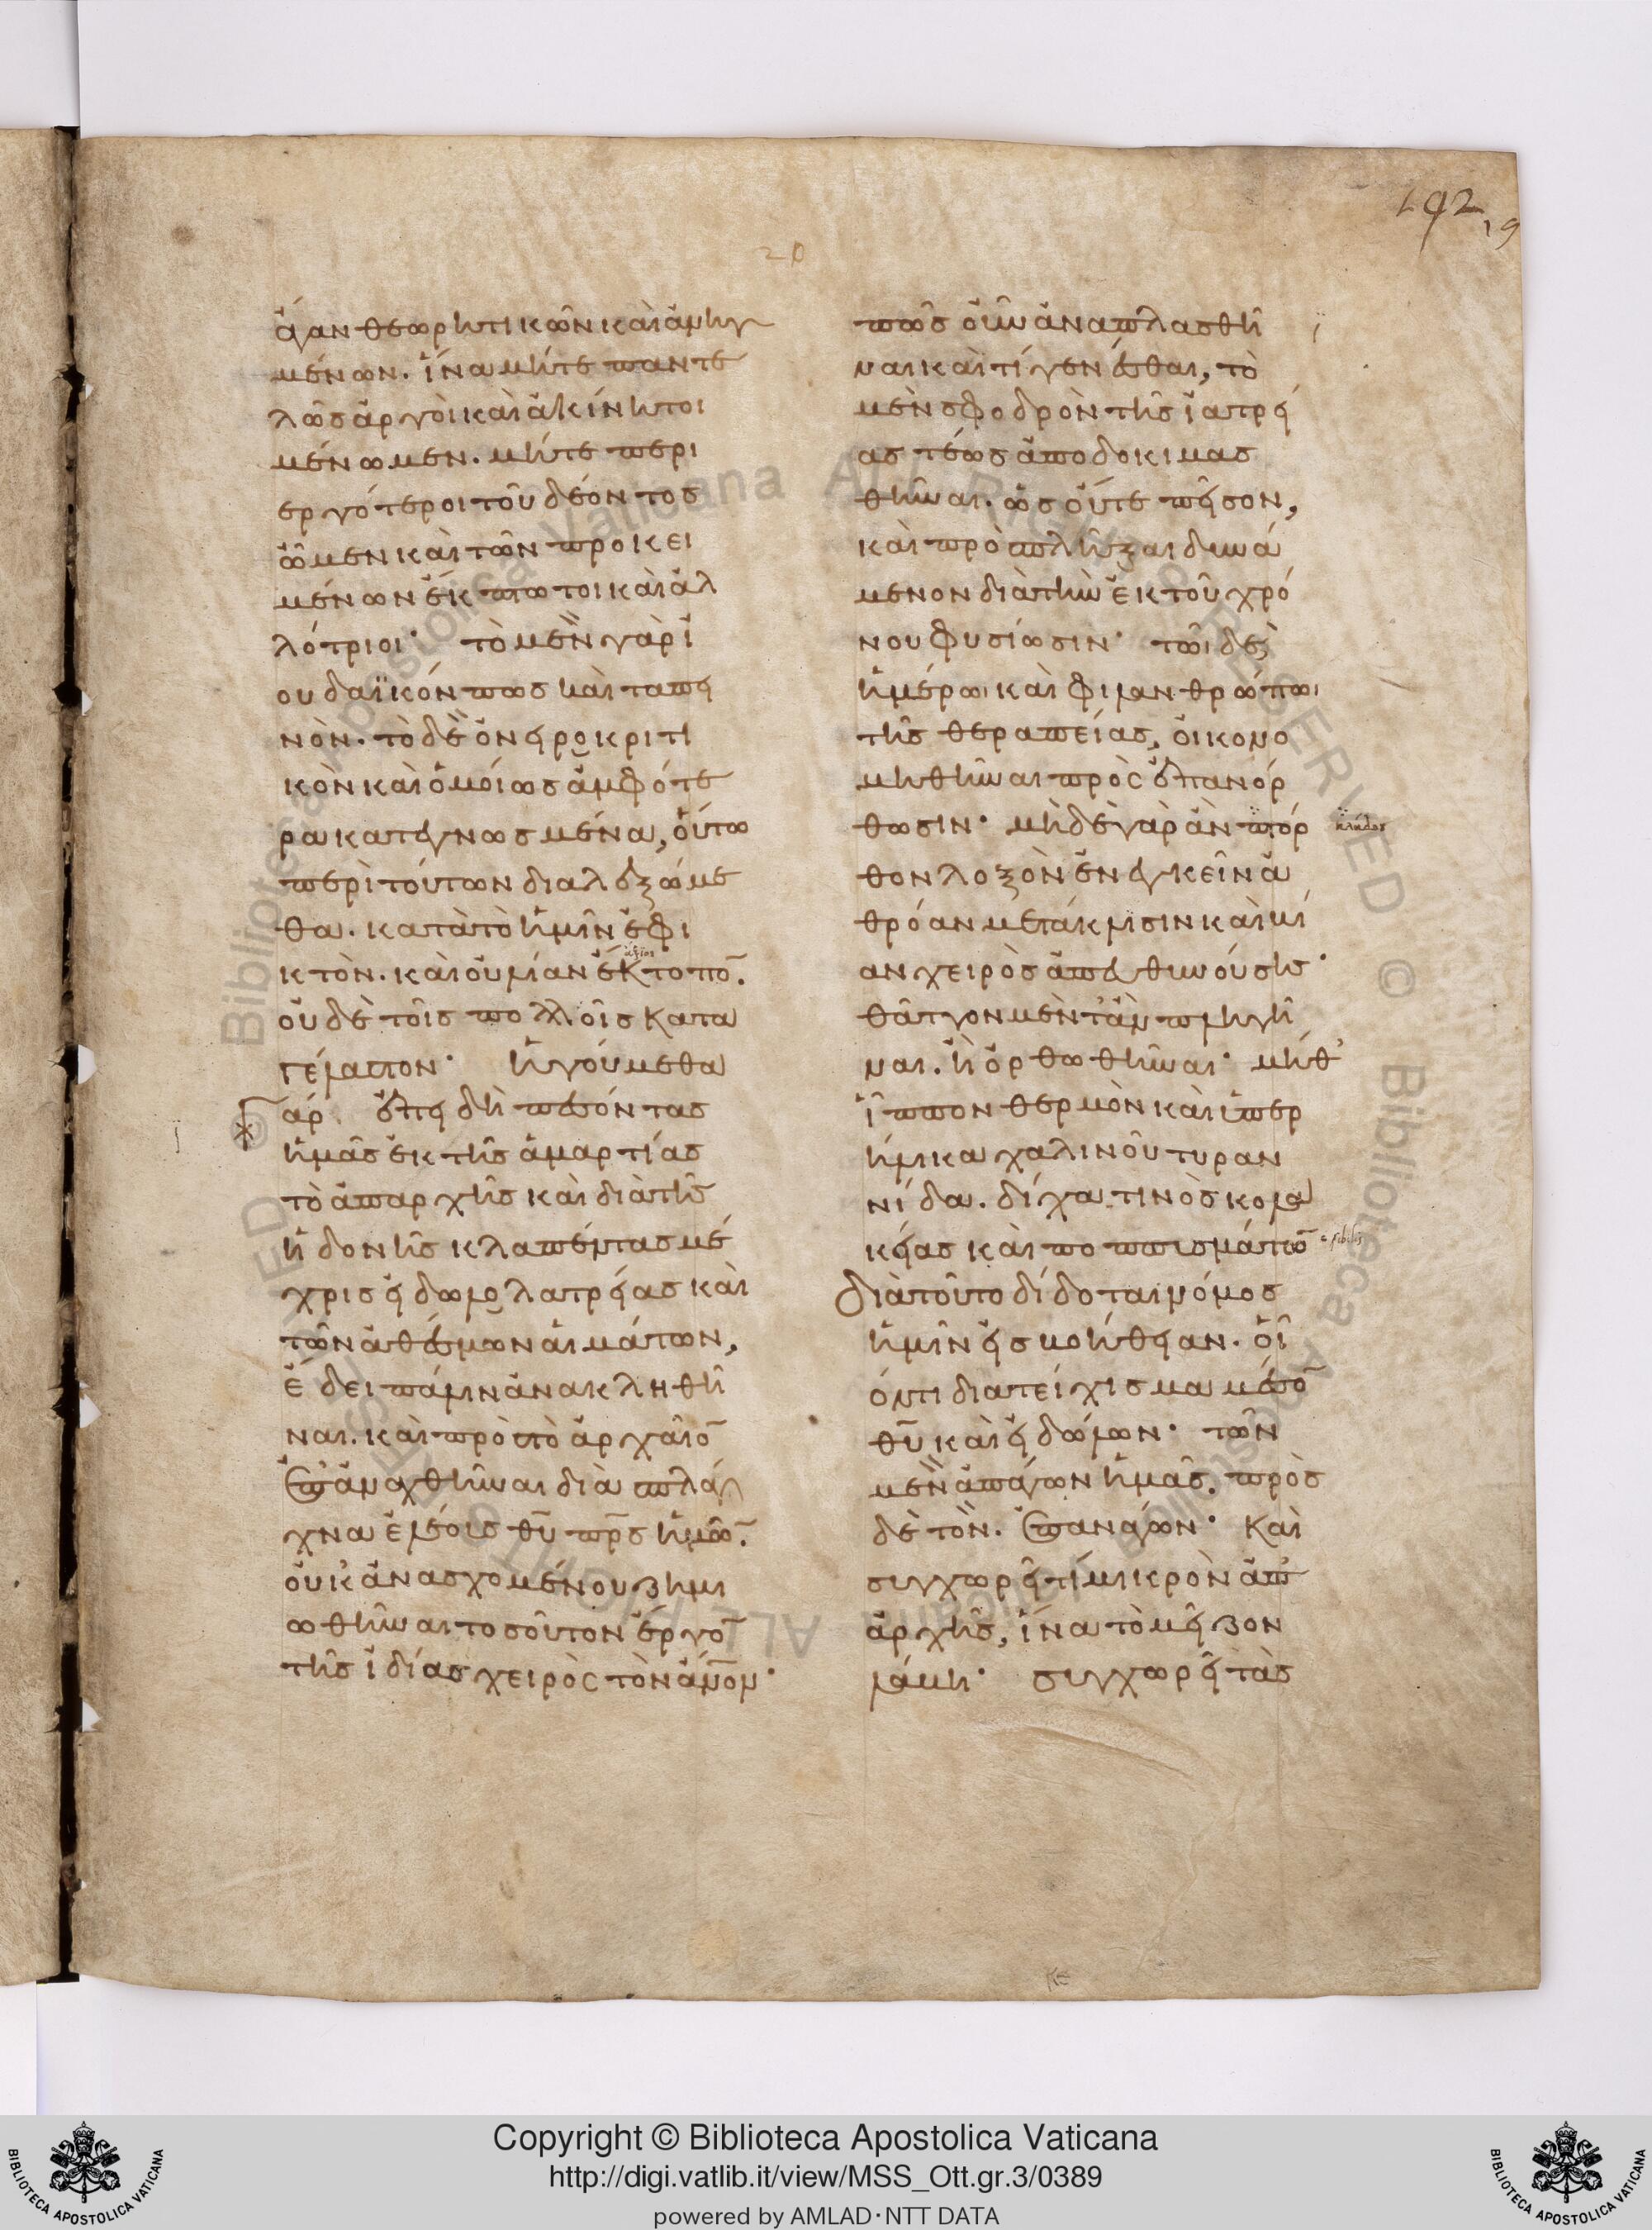 192
19
20
άγαν θεωρητικῶν καὶ ἀνηγ
μένων. ἵνα μήτε παντε
λῶς ἀργοὶ καὶ ἀκίνητοι
μένωμεν. μήτε περι
εργότεροι τοῦ δέοντος
ὦμεν καὶ τῶν προκει
μένων ἔκπτωτοι καὶ ἀλ
λότριοι· τὸ μὲν γὰρ ἰ
ουδαϊκόν πως καὶ ταπει
νὸν. τὸ δὲ ὀνειροκριτι
κὸν καὶ ὁμοίως ἀμφότε
ρα κατεγνωσμένα, οὕτω
περὶ τούτων διαλεξώμε
θα. κατὰ τὸ ἡμῖν ἐφι
κτὸν. καὶ οὐ λίαν ἔκτοπο̅.
οὐδὲ τοῖς πολλοῖς κατα
γέλαστον· ἡγούμεθα
ἀρ ἔπει δὴ πεσόντας
ἡμᾶς ἐκ τῆς ἁμαρτίας
τὸ ἀπαρχῆς καὶ διὰ τῆς
ἡδονῆς κλαπέντας μέ
χρις εἰδωλολατρείας καὶ
τῶν ἀθέσμων αἱμάτων,
ἔδει πάλιν ἀνακληθῆ
ναι. καὶ πρὸς τὸ ἀρχαῖο̅
ἐπαναχθῆναι διὰ σπλάγ
χνα ἐλέους θ̅υ̅ π̅ρ̅ς ἡμῶ̅.
οὐκ ἀνασχομένου ζημι
ωθῆναι τοσοῦτον ἔργο̅
τῆς ἰδίας χειρὸς τὸν ἄ̅ν̅ο̅ν·
πῶς οὖν ἀναπλασθῆ
ναι καὶ τί γενέσθαι, τὸ
μὲν σφοδρὸν τῆς ἰατρεί
ας τέως ἀποδοκιμασ
θῆναι. ὡς οὔτε πεῖσον,
καὶ προσπλῆξαι δυνά
μενον διὰ τὴν ἐκ τοῦ χρό
νου φυσίωσιν· τῶι δὲ
ἡμέρωι καὶ φιλανθρώπωι
τῆς θεραπείας, οἰκονο
μηθῆναι πρὸς ἐπανόρ
θωσιν· μηδὲ γὰρ ἂν πτόρ
θον λοξὸν ἐνεγκεῖν ἀ
θρόαν μετάκλισιν καὶ βί
αν χειρὸς ἀπευθυνούσης·
θᾶττον μὲν τἂν πληγῆ
ναι. ἢ ὀρθωθῆναι· μήθ'
ἵππον θερμὸν καὶ ὑπερ
ήλικα χαλινοῦ τυραν
νίδα. δίχα τινὸς κολα
κείας καὶ ποππυσμάτω̅
διὰ τοῦτο δίδοται νόμος
ἡμῖν εἰς βοήθειαν. οἷ
όν τι διατείχισμα μέσο̅
θ̅υ̅ καὶ εἰδώλων· τῶν
μὲν ἀπάγων ἡμᾶς. πρὸς
δὲ τὸν. ἐπανάγων· καὶ
συγχωρεῖ τί μικρὸν ἀπ'
ἀρχῆς, ἵνα τὸ μεῖζον
λάβη· συγχωρεῖ τὰς
κλάδος
sibilis
Copyright © Biblioteca Apostolica Vaticana
http://digi.vatlib.it/view/MSS_Ott.gr.3/0389
powered by AMLAD·NTT DATA
BIBLIOTECA APOSTOLICA VATICANA
BIBLIOTECA APOSTOLICA VATICANA